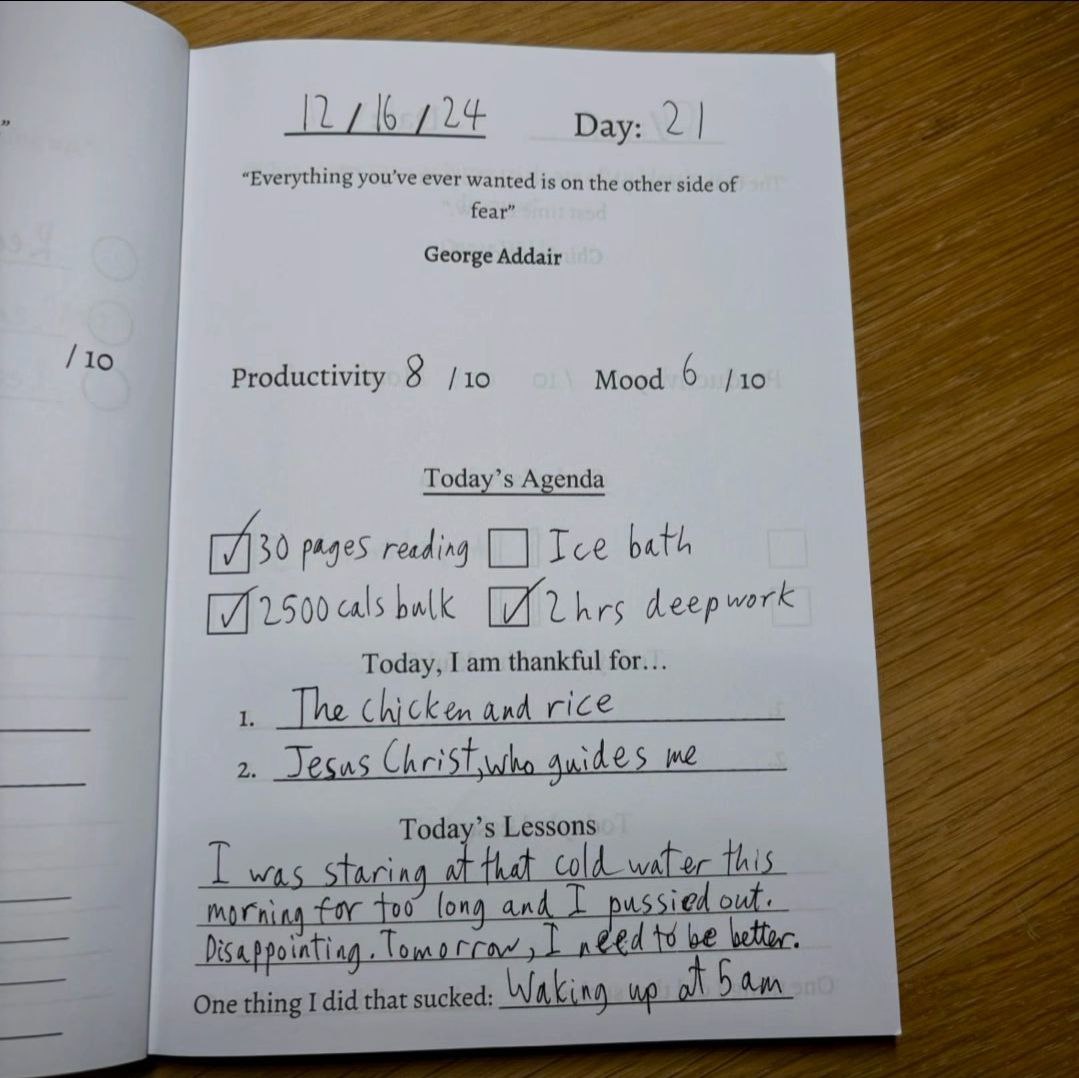 ”
12/16/24 Day: 21
“Everything you've ever wanted is on the other side of
fear”
George Addair
/ 10
Productivity 8 / 10 Mood 6 / 10
Today's Agenda
30 pages reading Ice bath
2500 cals bulk 2 hrs deep work
Today, I am thankful for...
1. The chicken and rice
2. Jesus Christ, who guides me
Today's Lessons
I was staring at that cold water this
morning for too long and I pussied out.
Disappointing. Tomorrow, I need to be better.
One thing I did that sucked: Waking up at 5 am